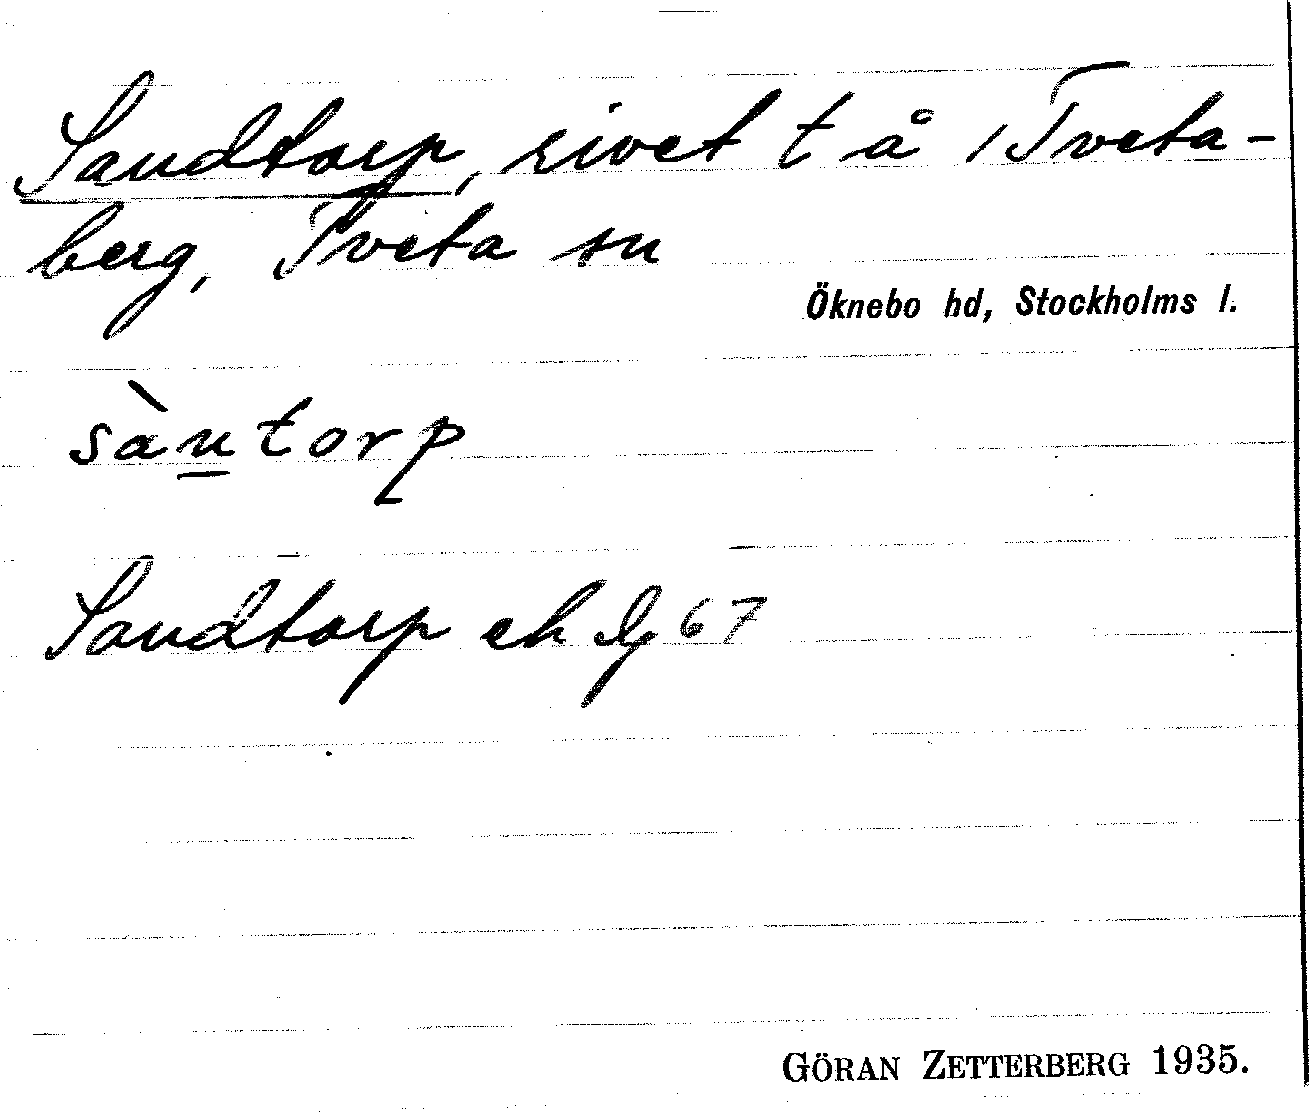 Sandtorp, rivet t å 1 Tveta-
berg, Tveta sn
Öknebo hd, Stockholms l.
sàntorp
Sandtorp ek 67
GÖRAN ZETTERBERG 1935.